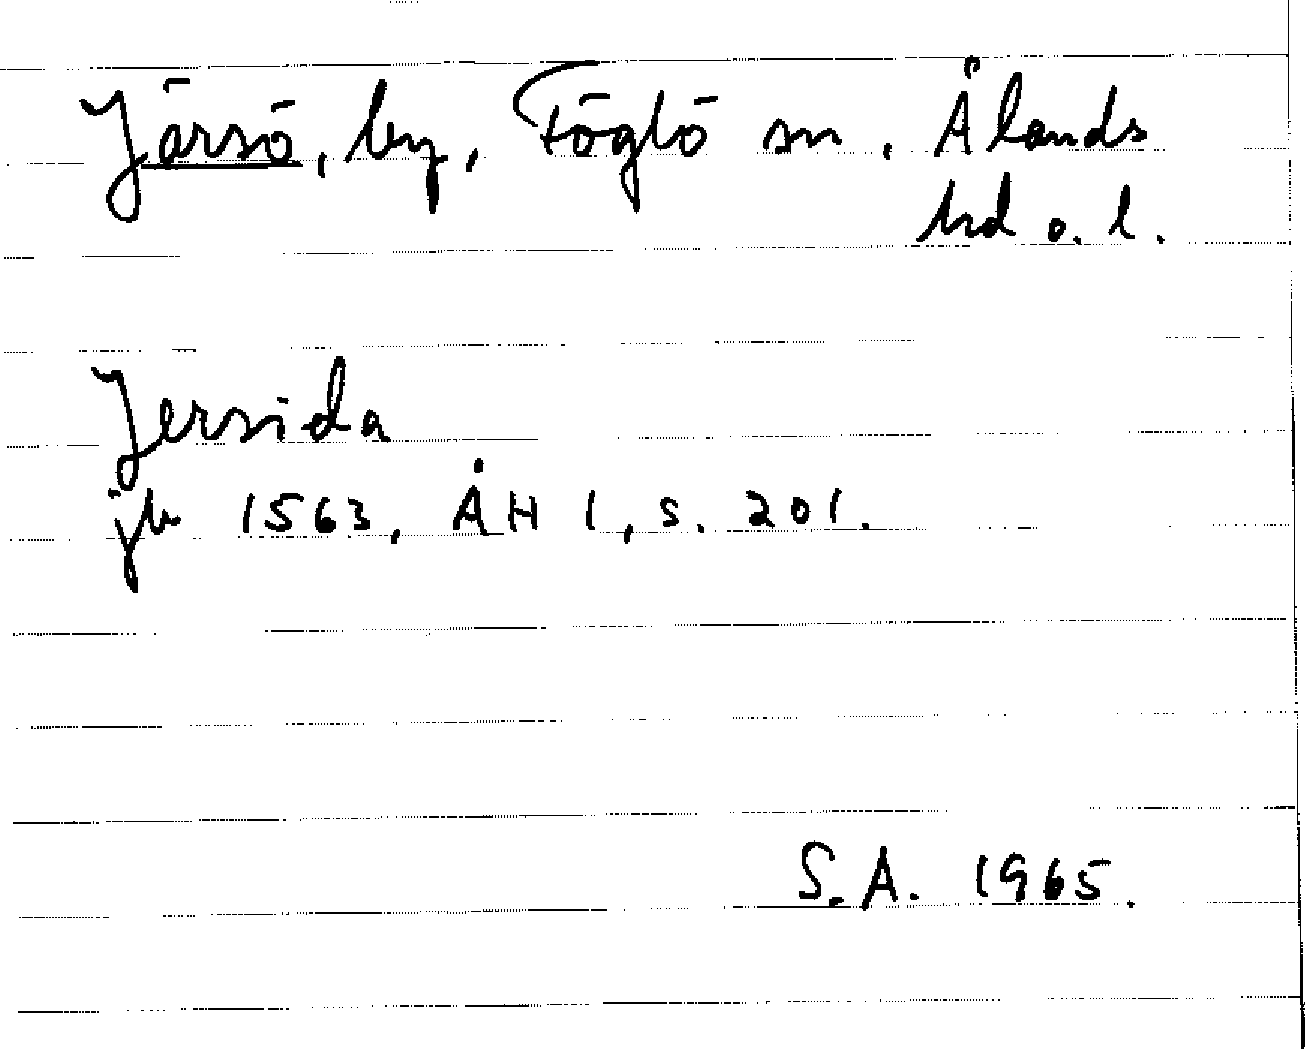 Järsö, by, Föglö sn, Ålands
hd o. l.
Jersida
jb 1563, ÅH 1, s. 201.
S.A. 1965.